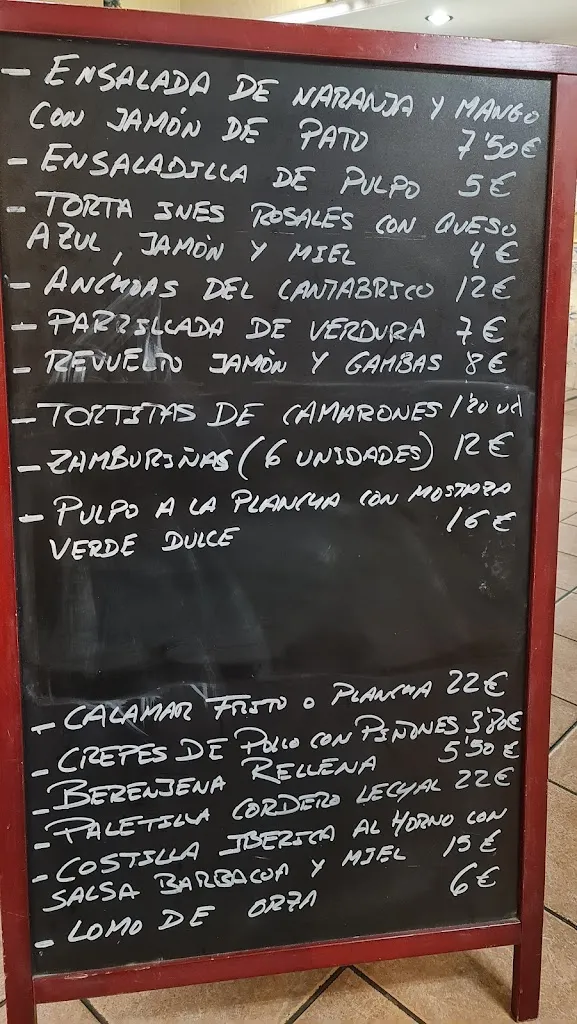 - ENSALADA DE NARANJA Y MANGO
CON JAMÓN DE PATO 7'50€
- ENSALADILLA DE PULPO 5€
- TORTA INES ROSALES CON QUESO
AZUL, JAMÓN Y MIEL 4€
- ANCHOAS DEL CANTABRICO 12€
- PARRILLADA DE VERDURA 7€
- REVUELTO JAMÓN Y GAMBAS 8€
- TORTITAS DE CAMARONES 1'20 ud
- ZAMBURIÑAS (6 UNIDADES) 12€
- PULPO A LA PLANCHA CON MOSTAZA
VERDE DULCE 16€
- CALAMAR FRITO O PLANCHA 22€
- CREPES DE POLLO CON PIÑONES 3'80€
- BERENJENA RELLENA 5'50€
- PALETILLA CORDERO LECHAL 22€
- COSTILLA IBERICA AL HORNO CON
SALSA BARBACOA Y MIEL 15€
- LOMO DE ORZA 6€